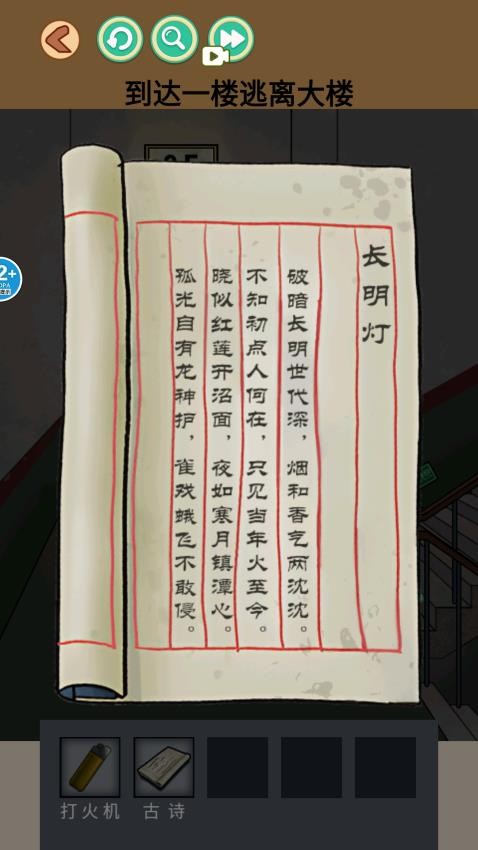 到达一楼逃离大楼
长明灯
破暗长明世代深，烟和香气两沈沈。
不知初点人何在，只见当年火至今。
晓似红莲开沼面，夜如寒月镇潭心。
孤光自有龙神护，雀戏蛾飞不敢侵。
打火机
古诗